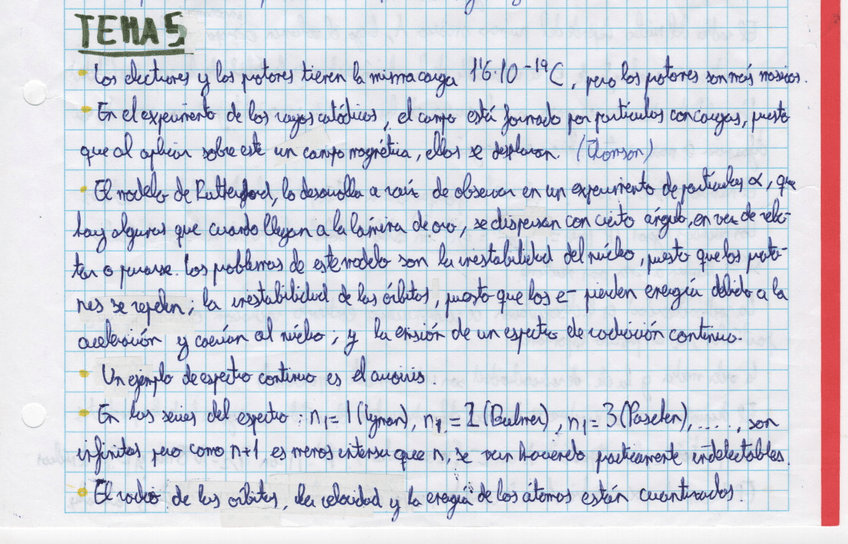 TEMA 5
Los electrones y los protones tienen la misma carga 1'6·10⁻¹⁹C, pero los protones son más masivos.
En el experimento de los rayos catódicos, el campo está formado por partículas con cargas, puesto
que al aplicar sobre este un campo magnético, ellas se desplazan. (Thomson)
El modelo de Rutherford, lo desarrolla a raíz de observar en un experimento de partículas α, que
hay algunas que cuando llegan a la lámina de oro, se dispersan con cierto ángulo, en vez de rebo-
tar o pararse. Los problemas de este modelo son la inestabilidad del núcleo, puesto que los proto-
nes se repelen; la inestabilidad de las órbitas, puesto que los e⁻ pierden energía debido a la
aceleración y caerían al núcleo; y la emisión de un espectro de radiación continuo.
Un ejemplo de espectro continuo es el arcoiris.
En las series del espectro: n₁ = 1 (Lyman), n₁ = 2 (Balmer), n₁ = 3 (Paschen), ...., son
infinitas pero como n+1 es menos intensa que n, se van haciendo prácticamente indetectables.
El radio de las órbitas, la velocidad y la energía de los átomos están cuantizados.